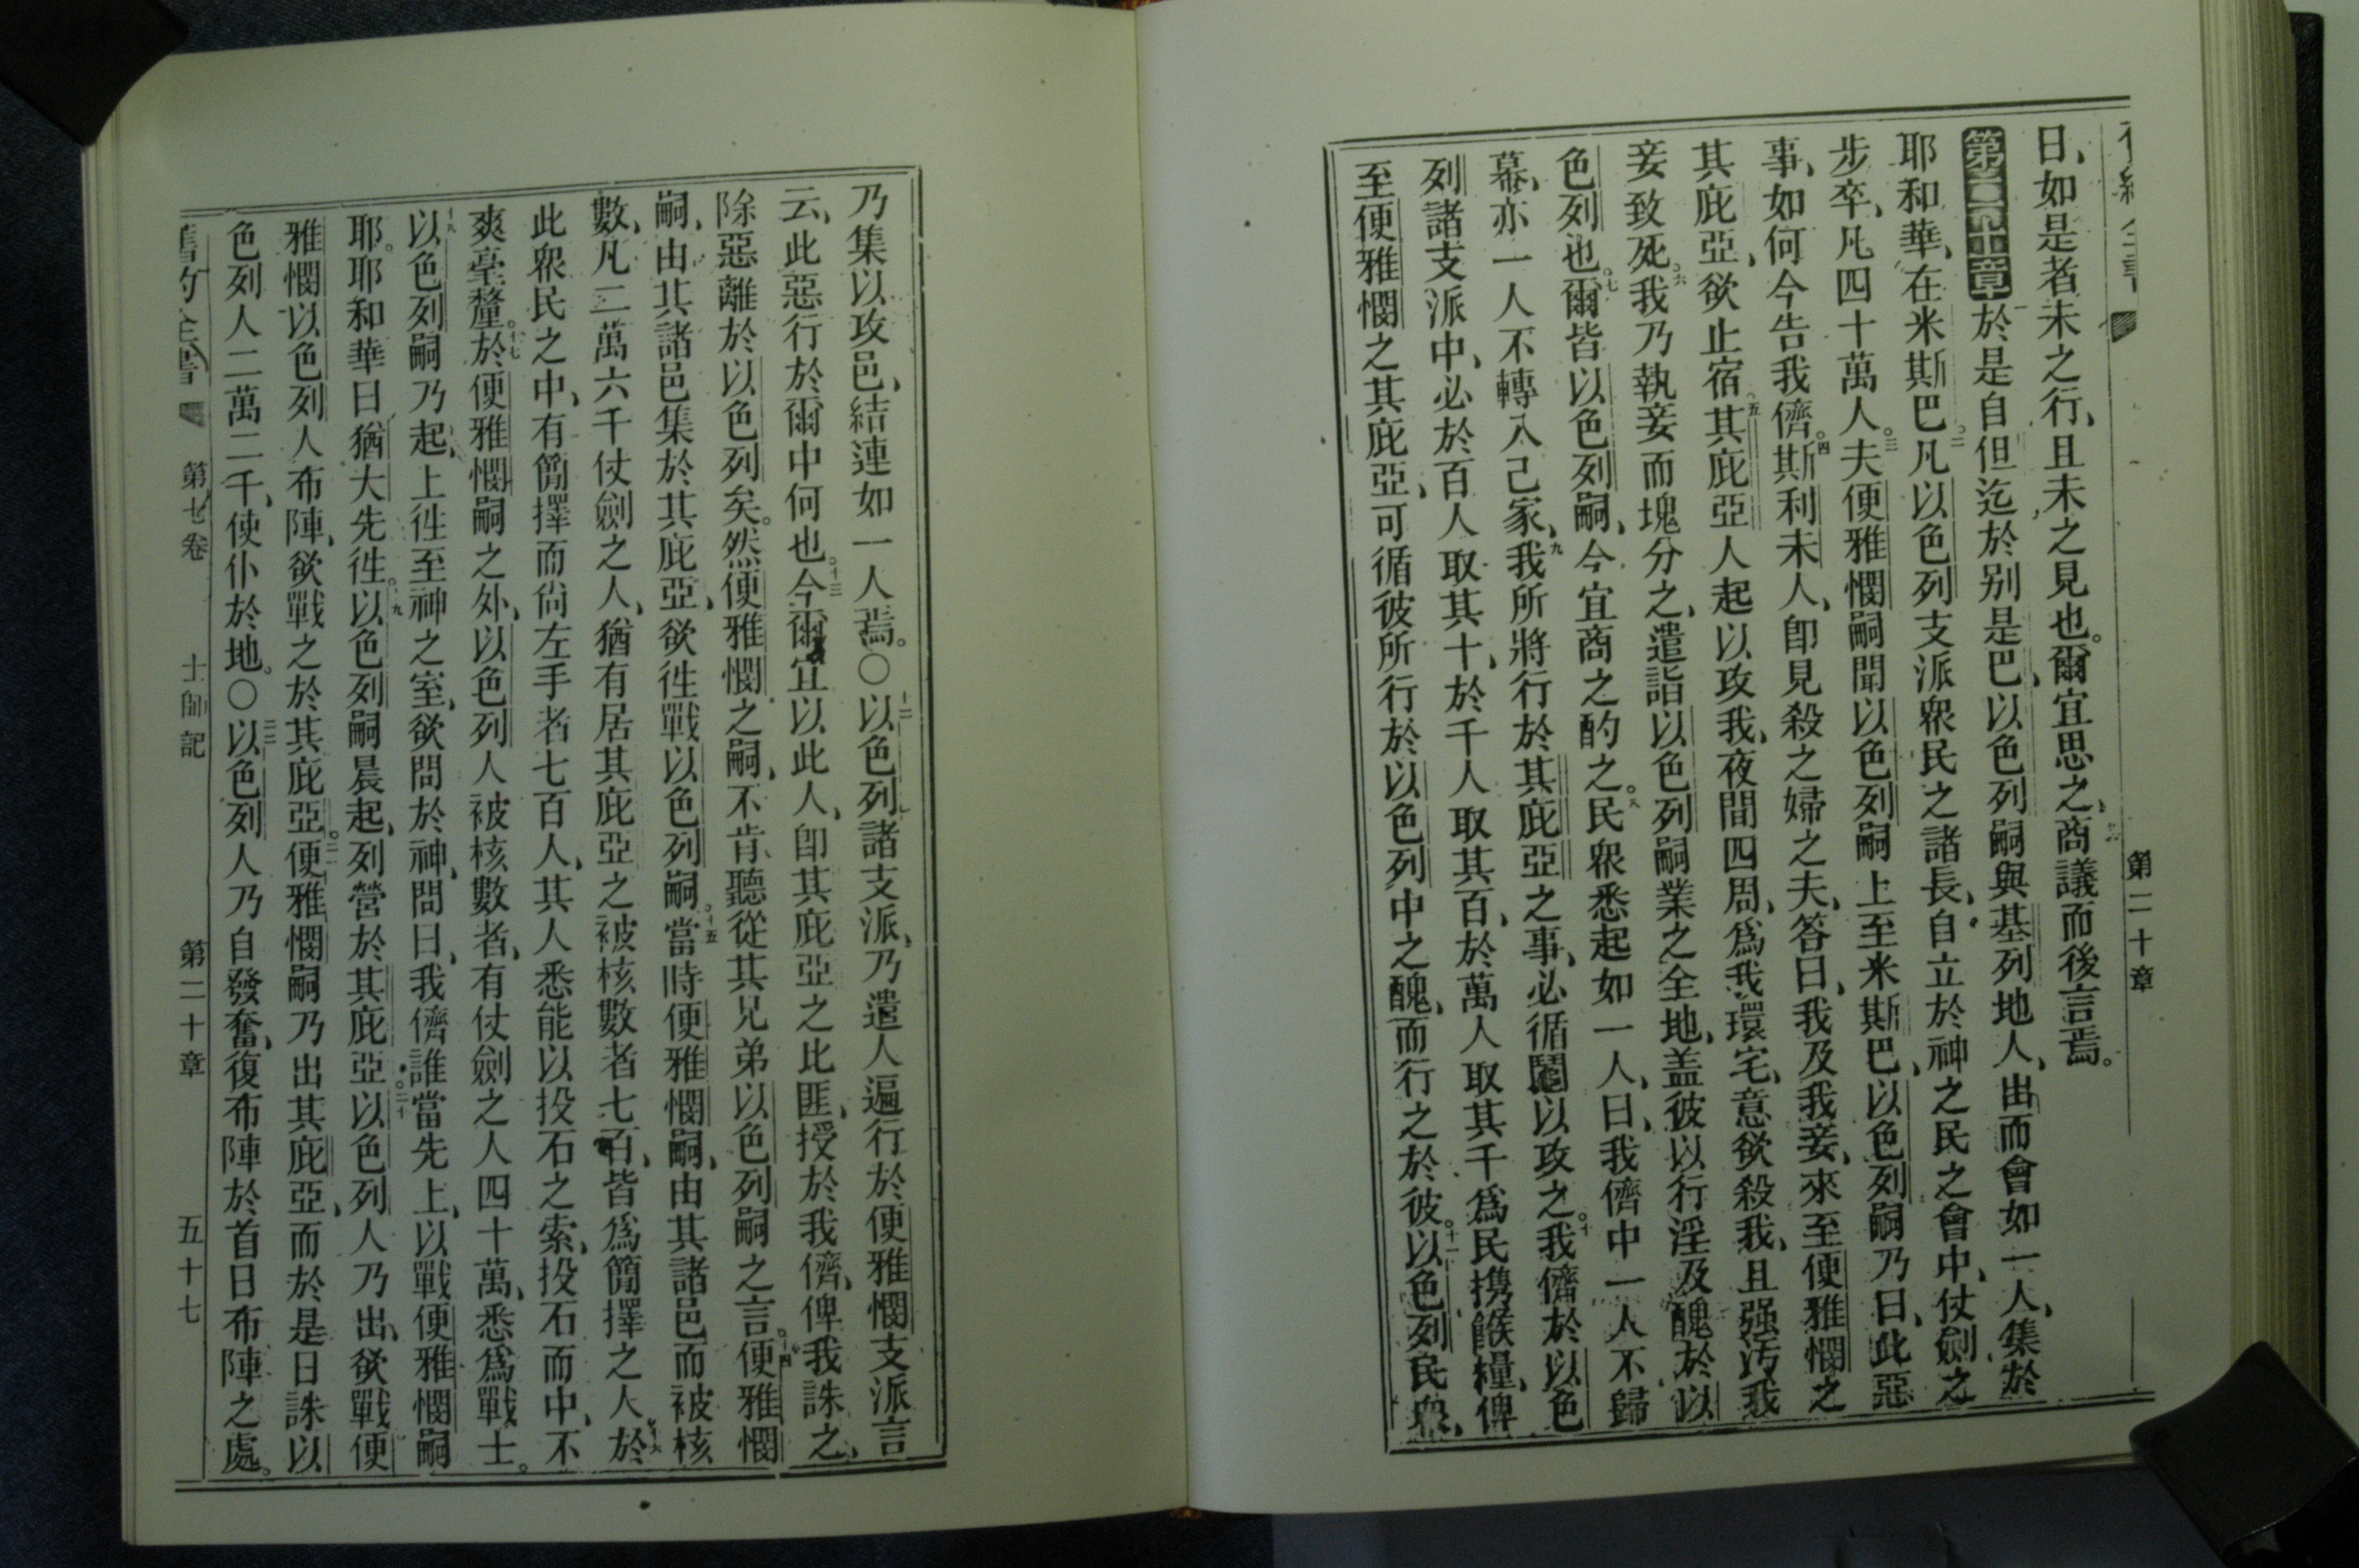 第二十章
日、如是者未之行、且未之見也。爾宜思之、商議而後言焉。
第二十章一於是自但迄於别是巴、以色列嗣與基列地人、出而會如一人、集於
耶和華、在米斯巴。二凡以色列支派衆民之諸長、自立於神之民之會中、仗劍之
步卒、凡四十萬人。三夫便雅憫嗣聞以色列嗣上至米斯巴、以色列嗣乃曰、此惡
事、如何今告我儕。四斯利未人、卽見殺之婦之夫、答曰、我及我妾、來至便雅憫之
其庇亞、欲止宿。五其庇亞人起以攻我、夜間四周、爲我環宅、意欲殺我、且强污我
妾致死。六我乃執妾而塊分之、遣詣以色列嗣業之全地、盖彼以行淫及醜於以
色列也。七爾皆以色列嗣、今宜商之酌之。八民衆悉起如一人、曰、我儕中一人不歸
幕、亦一人不轉入己家、九我所將行於其庇亞之事、必循鬮以攻之。十我儕於以色
列諸支派中、必於百人取其十、於千人取其百、於萬人取其千爲民携餱糧、俾
至便雅憫之其庇亞、可循彼所行於以色列中之醜、而行之於彼。十一以色列民衆、
乃集以攻邑、結連如一人焉。○十二以色列諸支派、乃遣人遍行於便雅憫支派言
云、此惡行於爾中何也。十三今爾宜以此人、卽其庇亞之比匪、授於我儕、俾我誅之、
除惡離於以色列矣。然便雅憫之嗣、不肯聽從其兄弟以色列嗣之言。十四便雅憫
嗣、由其諸邑集於其庇亞、欲徃戰以色列嗣。十五當時便雅憫嗣、由其諸邑而被核
數、凡二萬六千仗劍之人、猶有居其庇亞之被核數者七百、皆爲簡擇之人、十六於
此衆民之中、有簡擇而尙左手者七百人、其人悉能以投石之索、投石而中、不
爽毫釐。十七於便雅憫嗣之外、以色列人被核數者、有仗劍之人四十萬、悉爲戰士。
十八以色列嗣乃起、上徃至神之室、欲問於神、問曰、我儕誰當先上、以戰便雅憫嗣
耶。耶和華曰猶大先徃。十九以色列嗣晨起、列營於其庇亞。二十以色列人乃出、欲戰便
雅憫以色列人布陣、欲戰之於其庇亞。二一便雅憫嗣乃出其庇亞、而於是日誅以
色列人二萬二千、使仆於地。○二二以色列人乃自發奮、復布陣於首日布陣之處。
舊約全書 第七卷 士師記 第二十章 五十七